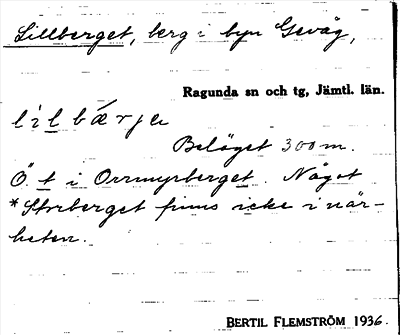 Lillberget, berg i byn Gevåg,
Ragunda sn och tg, Jämtl. län.
Beläget 300 m.
Ö. t. i Orrmyrberget. Något
*Storberget finns icke i när-
heten.
BERTIL FLEMSTRÖM 1936.